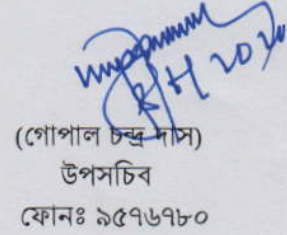 (গোপাল চন্দ্র দাস)
উপসচিব
ফোনঃ ৯৫৭৬৭৮০